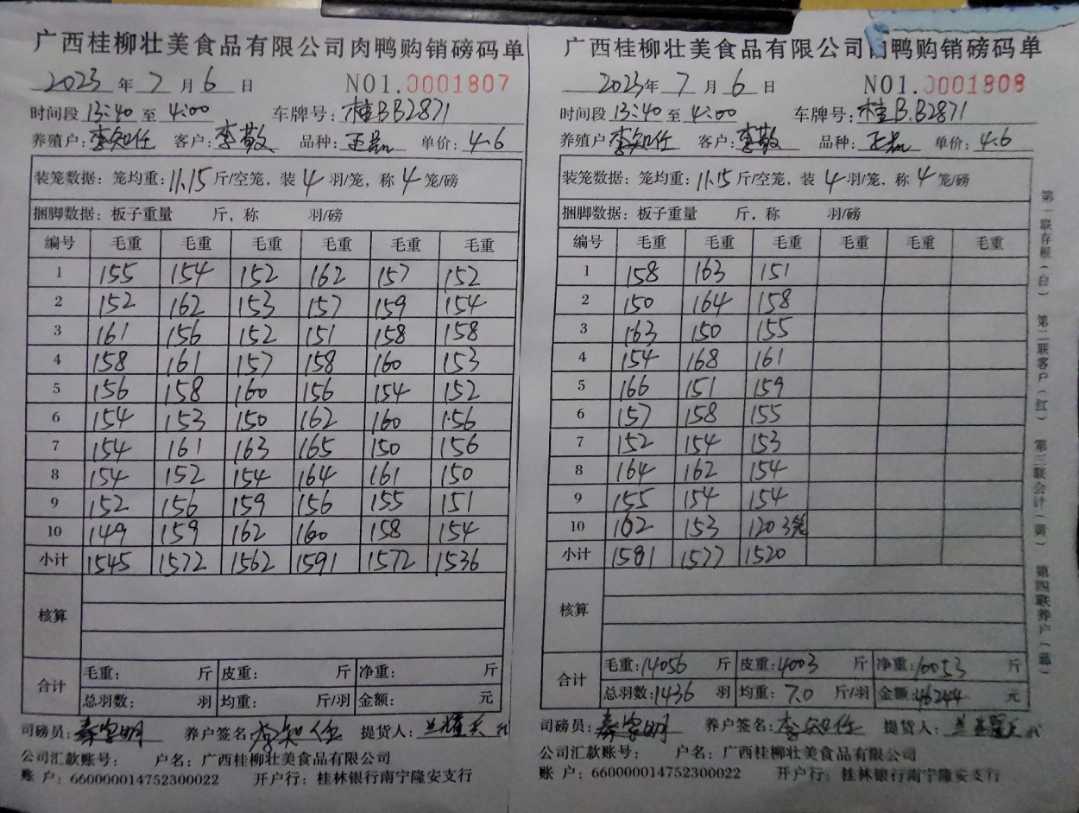 广西桂柳壮美食品有限公司肉鸭购销磅码单
2023年7月6日 NO1.0001807
时间段13:40至4:00 车牌号:桂BB2871
养殖户:李知任 客户:李敬 品种: 单价:4.6
装笼数据:笼均重:11.15斤/空笼,装4羽/笼,称4笼/磅
捆脚数据:板子重量 斤,称 羽/磅
编号 毛重 毛重 毛重 毛重 毛重 毛重
1 155 154 152 162 157 152
2 152 162 153 157 159 154
3 161 156 152 151 158 158
4 158 161 157 158 160 153
5 156 158 160 156 154 152
6 154 153 150 162 160 156
7 154 161 163 165 150 156
8 154 152 154 164 161 150
9 152 156 159 156 155 151
10 149 159 162 160 158 154
小计 1545 1572 1562 1591 1572 1536
核算
合计 毛重: 斤 皮重: 斤 净重: 斤
总羽数: 羽 均重: 斤/羽 金额: 元
司磅员:秦家明 养户签名:李知任 提货人:
公司汇款账号: 户名:广西桂柳壮美食品有限公司
账 户:660000014752300022 开户行:桂林银行南宁隆安支行
广西桂柳壮美食品有限公司肉鸭购销磅码单
2023年7月6日 NO1.0001808
时间段13:40至4:00 车牌号:桂B.B2871
养殖户:李知任 客户:李敬 品种: 单价:4.6
装笼数据:笼均重:11.15斤/空笼,装4羽/笼,称4笼/磅
捆脚数据:板子重量 斤,称 羽/磅
编号 毛重 毛重 毛重 毛重 毛重 毛重
1 158 163 151
2 150 164 158
3 163 150 155
4 154 168 161
5 166 151 159
6 157 158 155
7 152 154 153
8 164 162 154
9 155 154 154
10 162 153 120 3笼
小计 1581 1577 1520
核算
合计 毛重:14056斤 皮重:4003斤 净重:10053斤
总羽数:1436羽 均重:7.0斤/羽 金额:46244元
司磅员:秦家明 养户签名:李知任 提货人:
公司汇款账号: 户名:广西桂柳壮美食品有限公司
账 户:660000014752300022 开户行:桂林银行南宁隆安支行
第一联存根(白) 第二联客户(红) 第三联会计(黄) 第四联养户(蓝)